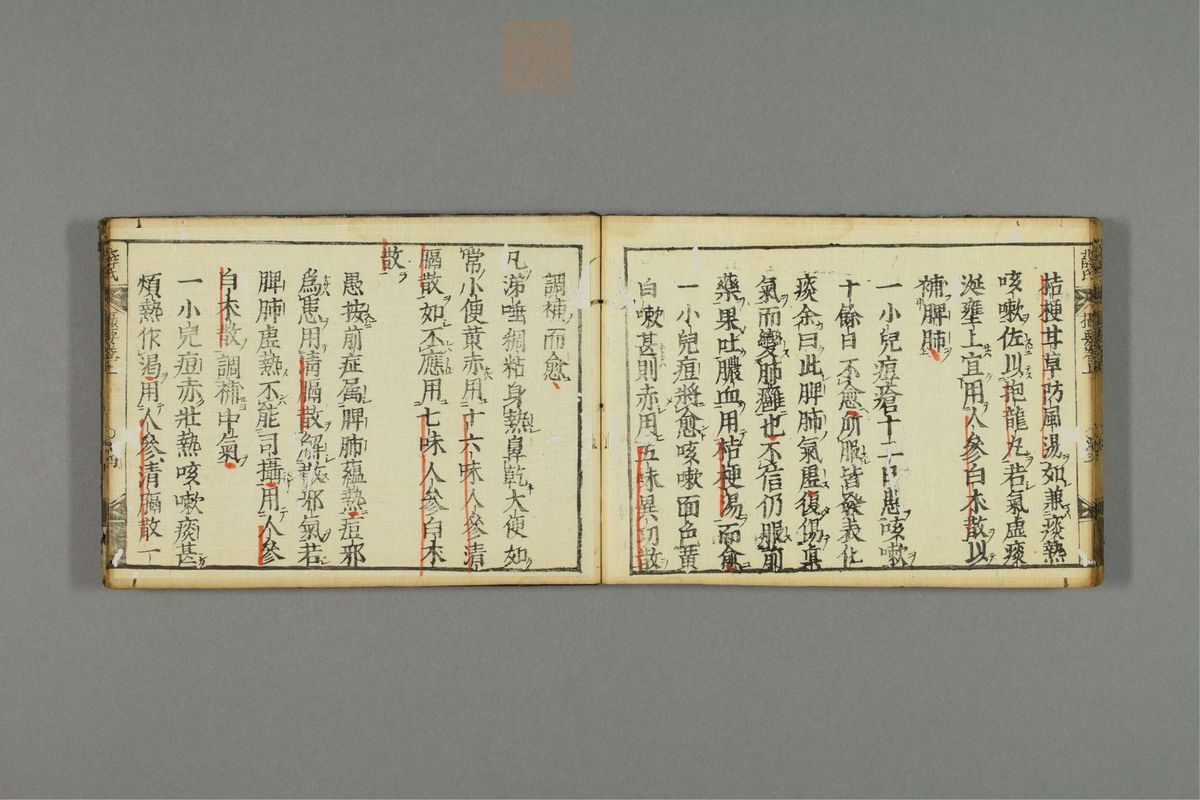 桔梗甘草防風湯如兼痰熱
咳嗽佐以抱龍丸若氣虛痰
涎壅上宜用人參白朮散以
補脾肺
一小兒痘瘡十二日患咳嗽
十餘日不愈所服皆發表化
痰余曰此脾肺氣虛復傷真
氣而變肺癰也不信仍服前
藥果吐膿血用桔梗湯而愈
一小兒痘將愈咳嗽面色黃
白嗽甚則亦用五味異功散
調補而愈
凡涕唾稠粘身熱鼻乾大便如
常小便黃赤用十六味人參清
膈散如不應用七味人參白朮
散
愚按前症属脾肺蘊熱痘邪
為患用清膈散解散邪氣若
脾肺虛熱不能司攝用人參
白朮散調補中氣
一小兒痘赤壯熱咳嗽痰甚
煩熱作渴用人參清膈散一